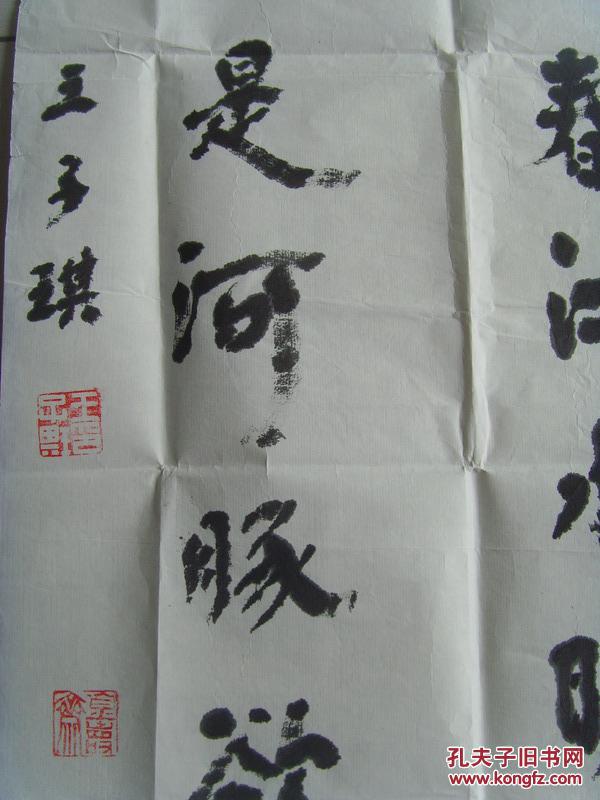 春江水暖
是河豚欲
王子琪
孔夫子旧书网
www.kongfz.com